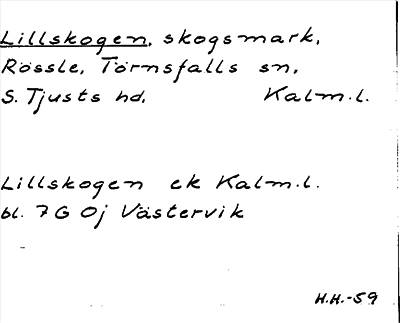 Lillskogen, skogsmark,
Rössle, Törnsfalls sn,
S. Tjusts hd, Kalm.l.
Lillskogen ek Kalm.l.
bl. 7G Oj Västervik
H.H.-59